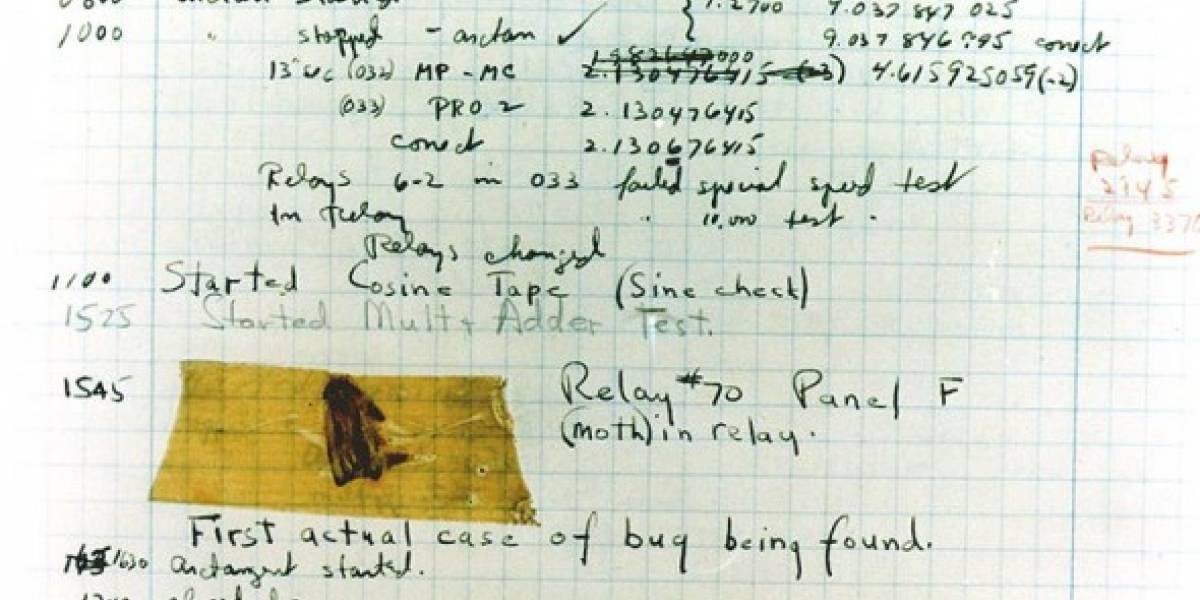 { 1.2700 9.037 847 025
1000 " stopped - arctan ✓ 9.037 846 995 correct
13" uc (032) MP - MC 4.615925059(-2)
(033) PRO 2 2.130476415
correct 2.130676415
Relays 6-2 in 033 failed special speed test
In relay " 10,000 test .
Relay
2145
Relay 3370
Relays changed
1100 Started Cosine Tape (Sine check)
1525 Started Mult + Adder Test.
1545 Relay #70 Panel F
(moth) in relay.
First actual case of bug being found.
1630 arctangent started.